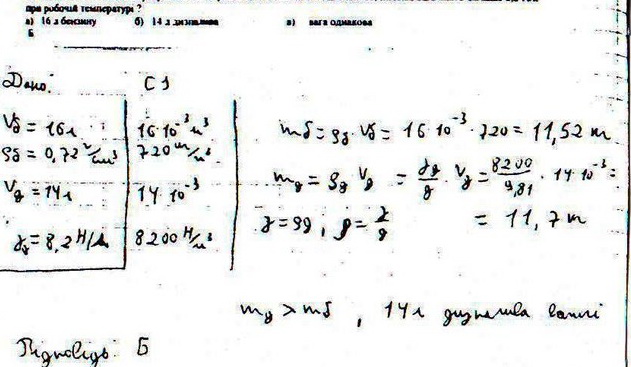 при робочій температурі ?
а) 16 л бензину б) 14 л дизпалива в) вага однакова
Б
Дано: СІ
Vб = 16л 16·10⁻³ м³
ρб = 0,72 г/см³ 720 кг/м³
Vд = 14л 14·10⁻³
γд = 8,2 Н/л 8200 Н/м³
mб = ρб · Vб = 16·10⁻³ · 720 = 11,52 кг
mд = ρд Vд = γд/g · Vд = 8200/9,81 · 14·10⁻³ =
= 11,7 кг
γ = ρg ; ρ = γ/g
mд > mб , 14л дизпалива важчі
Відповідь: Б